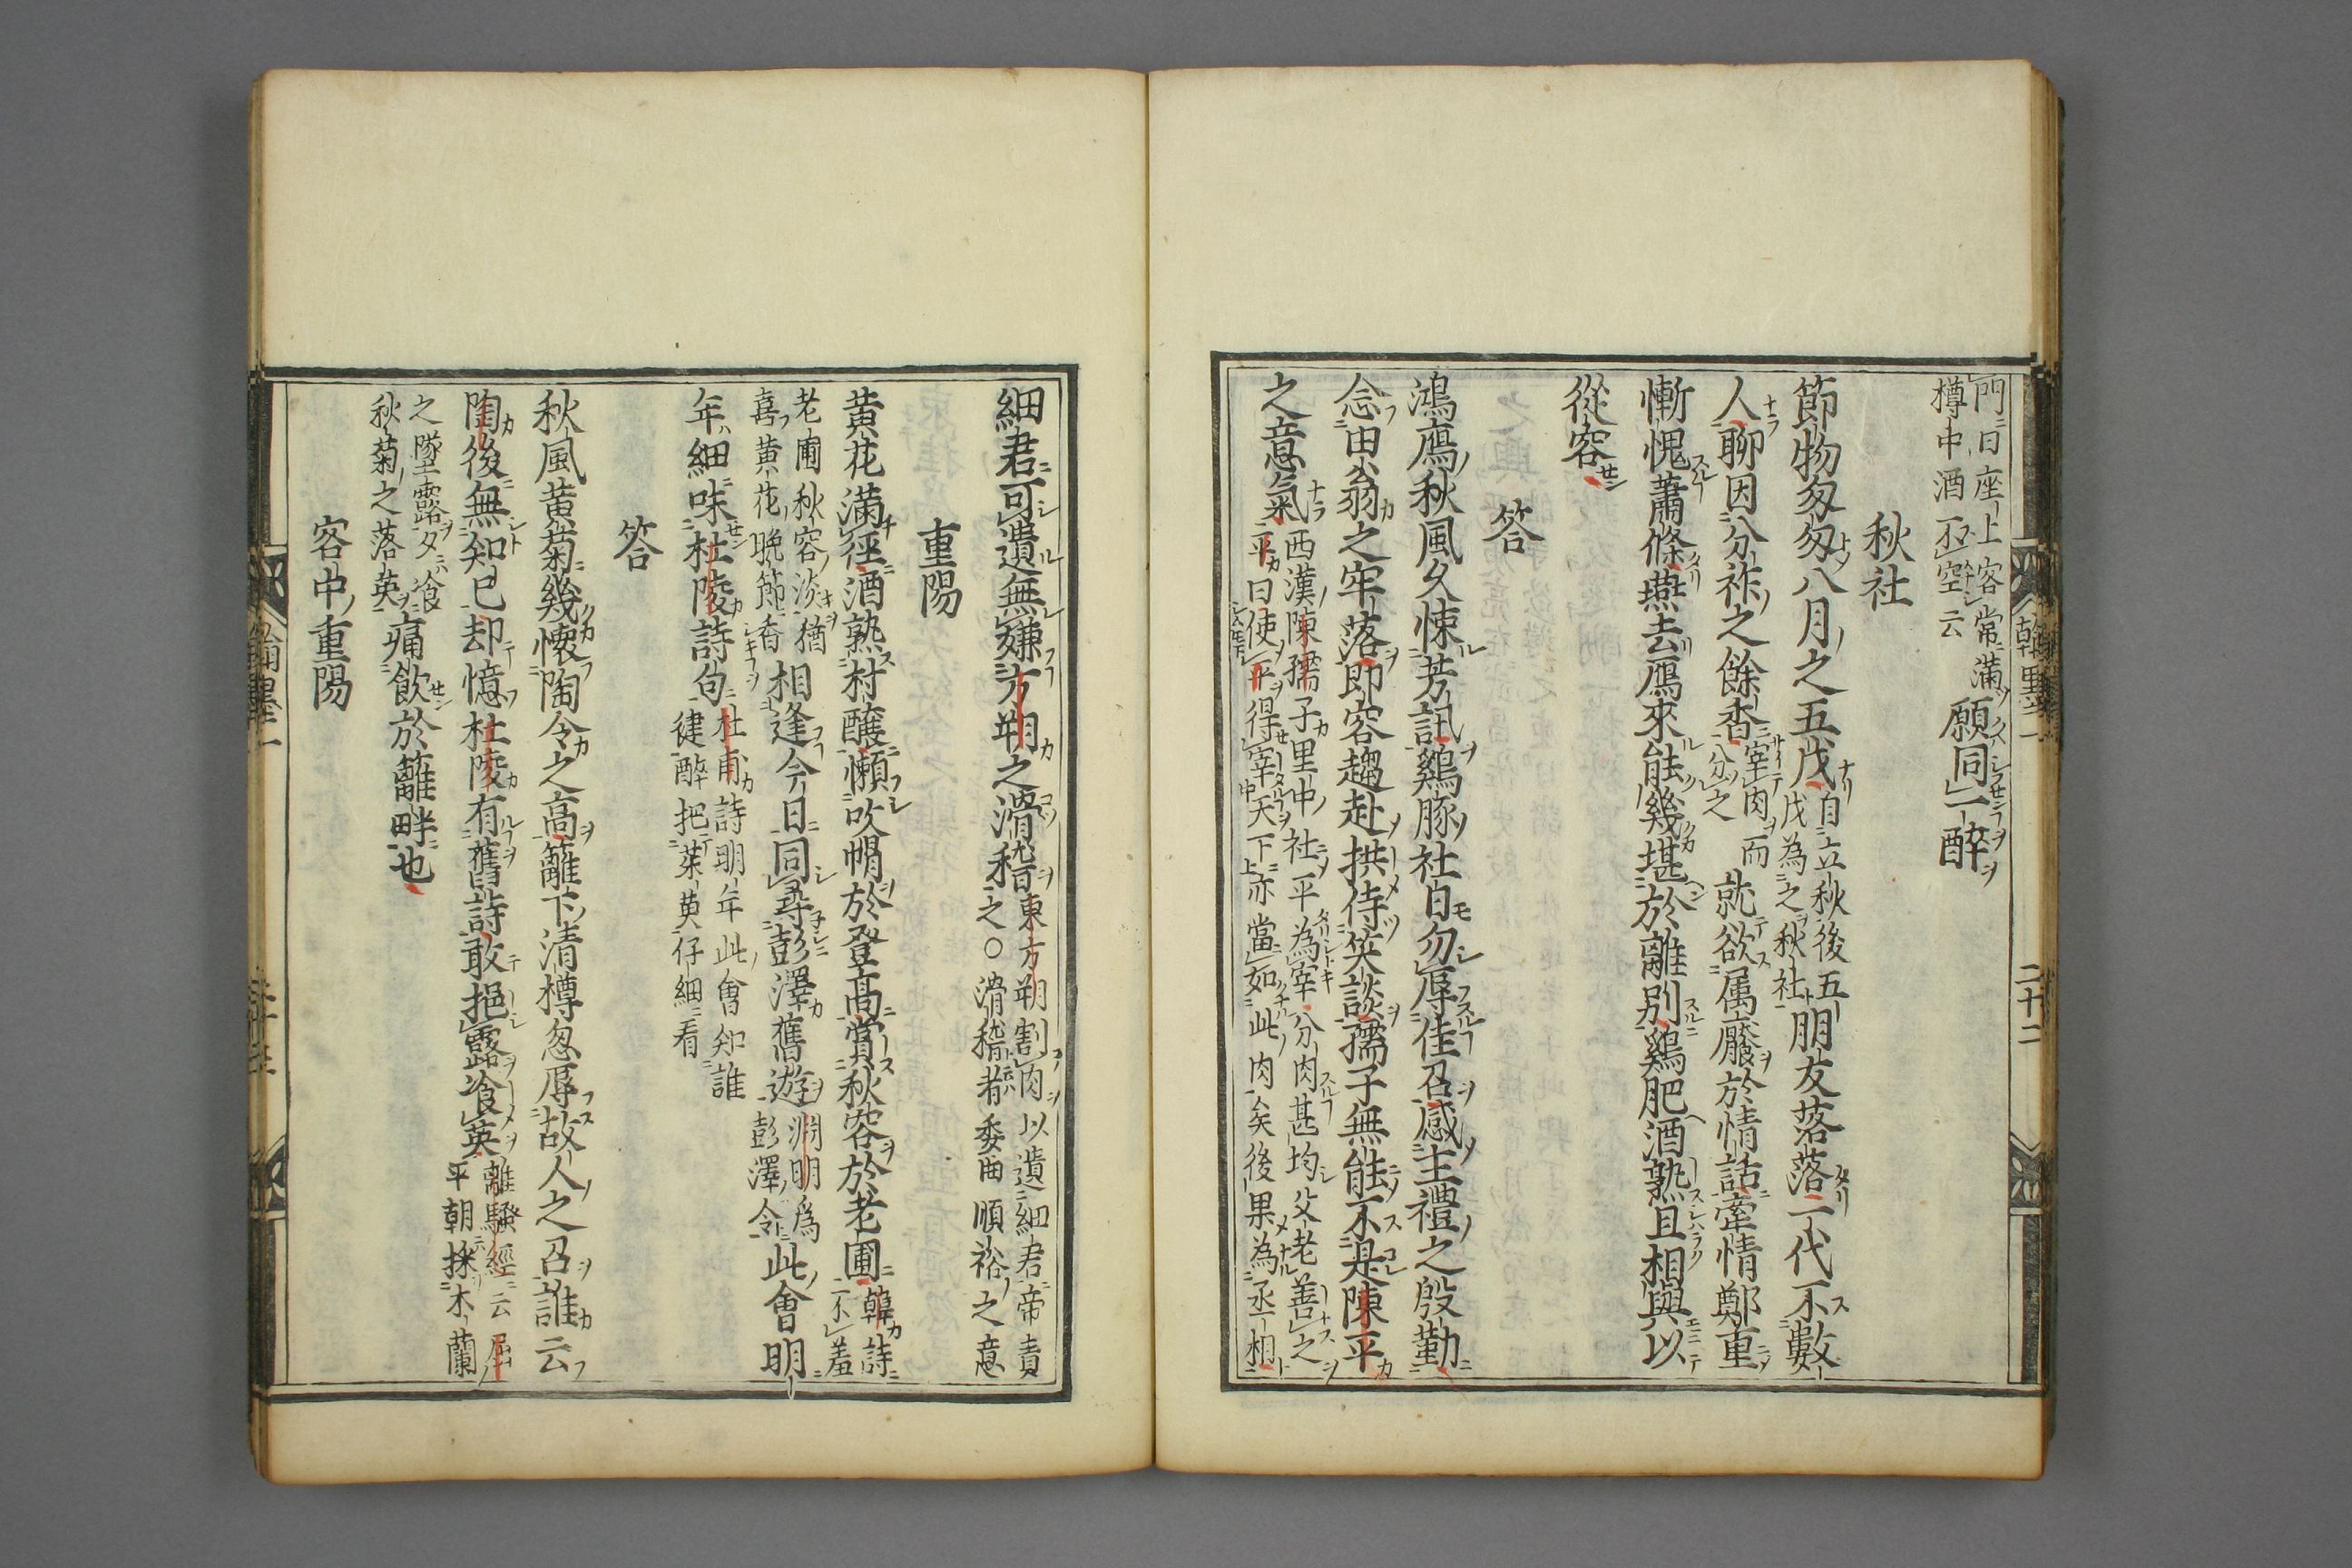 門曰座上客常滿
樽中酒不空云
願同一醉
秋社
節物匆匆八月之五戊
自立秋後五
戊為之秋社
朋友落落一代不數
人聊因分祚之餘
宰肉而
分之
就欲属厭於情話牽情鄭重
慚愧蕭條燕去鴈來能幾堪於離別鷄肥酒熟且相與以
從容
答
鴻鴈秋風久悚芳訊鷄豚社日勿厚佳召感主禮之殷勤
念田翁之牢落即容趨赴拱待笑談孺子無能不是陳平
之意氣
西漢陳孺子里中社平為宰分肉甚均父老善之
平曰使平得宰天下亦當如此肉矣後果為丞相
翰墨一
二十二
細君可遺無嫌方朔之滑稽
東方朔割肉以遺細君帝責
之○滑稽者委曲順裕之意
重陽
黄花滿徑酒熟村醸懶吹帽於登髙賞秋容於老圃
韓詩
不羞
老圃秋容淡猶
喜黄花晩節香
相逢今日同尋彭澤舊遊
淵明爲
彭澤令
此會明
年細味杜陵詩句
杜甫詩明年此會知誰
健醉把茱萸仔細看
答
秋風黄菊幾懷陶令之高籬下清樽忽辱故人之召誰云
陶後無知已却憶杜陵有舊詩敢挹露飡英
離騷經云屈
平朝採木蘭
之墜露夕飡
秋菊之落英
痛飲於籬畔也
客中重陽
翰墨一